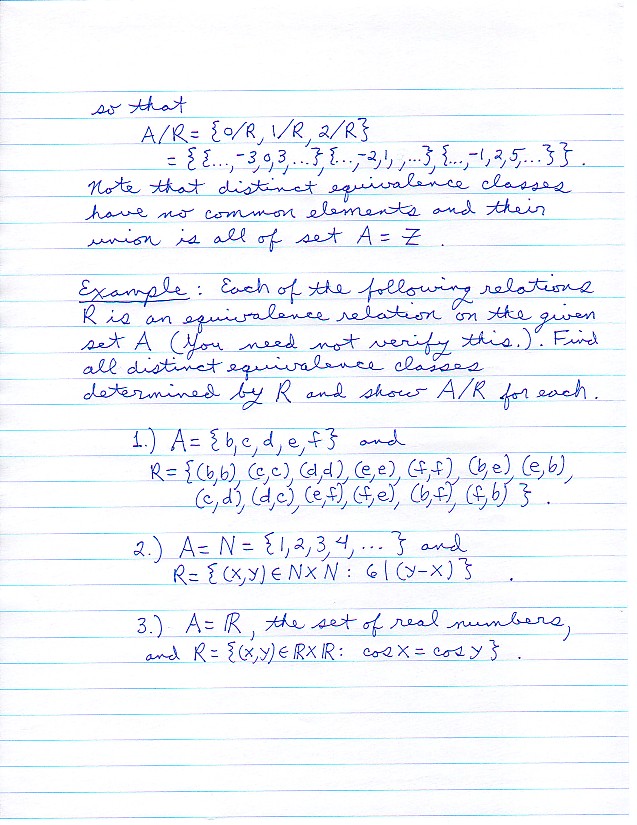 so that
A/R = {0/R, 1/R, 2/R}
= {{...,-3,0,3,...},{...,-2,1, ,...},{...,-1,2,5,...}}.
Note that distinct equivalence classes
have no common elements and their
union is all of set A = Z .
Example : Each of the following relations
R is an equivalence relation on the given
set A (You need not verify this.). Find
all distinct equivalence classes
determined by R and show A/R for each.
1.) A = {b,c,d,e,f} and
R = {(b,b), (c,c), (d,d), (e,e), (f,f), (b,e), (e,b),
(c,d), (d,c), (e,f), (f,e), (b,f), (f,b) } .
2.) A = N = {1,2,3,4, ... } and
R = { (x,y) ∈ N×N : 6 | (y-x) } .
3.) A = ℝ, the set of real numbers,
and R = {(x,y) ∈ ℝ×ℝ : cos x = cos y } .